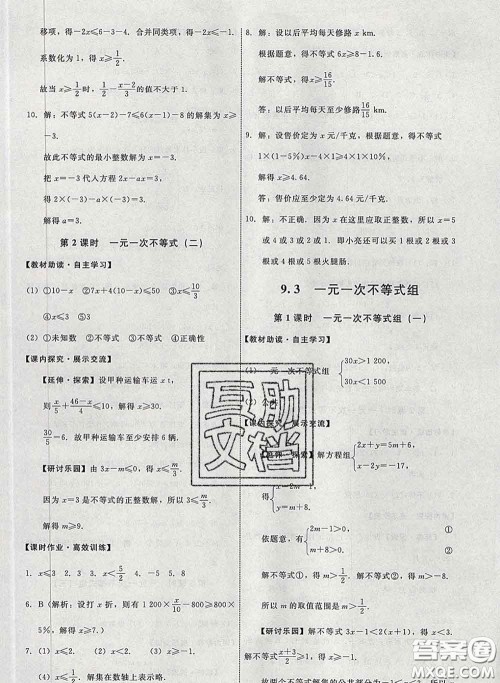 移项,得-x≤6-3-4. 合并同类项,得-x≤-1.
系数化为1,得x≥1/2.
故当x≥1/2时,1/2-(x-2)/3的值不大于1.
10. 解:不等式5(x-2)-7≤6(x-1)-8的解集为x≥
-3.
故此不等式的最小整数解为x=-3.
把x=-3代入方程2x-ax=3,
得2×(-3)+3a=3.
解得a=3.
第2课时 一元一次不等式(二)
【教材助读·自主学习】
(1) ①10-x ②7x+4(10-x)≤50 ③x≤10/3
④x≤3 ⑤3
(2) ①未知数 ②不等式 ③不等式 ④正确性
【课内探究·展示交流】
【延伸·探索】设甲种运输车运x t,
则x/5+(46-x)/4≤10. 解得x≥30.
30/5=6. 故甲种运输车至少安排6辆.
【研讨乐园】由3x-m≤0,得x≤m/3.
因为x=3是不等式的正整数解,所以3≤m/3.
解得m≥9.
【课时作业·高效训练】
1. x≤2 2. 3 3. x<5/2 4. -5 5. m≤2
6. B(解析:设打x折,则有1 200×x/10-800≥800×
5%,解得x≥7.)
7. (1) x≤2. (2) x<2. (3) x≤-2.
解集在数轴上表示
8. 解:设以后平均每天修路x km.
根据题意,得不等式6x≥8-1.6.
解不等式,得x≥16/15.
答:设以后平均每天至少修路16/15 km.
9. 解:设售价定为x元/千克,根据题意,得不等式
1×(1-5%)x-4×1≥4×1×10%,
解得x≥4.64.
答:售价应至少定为4.64元/千克.
10. 解:不正确. 因为x在这里应取正整数,所以x=5
或4或3或2或1. 即小亮还可以买1根或2根或3
根或4根或5根火腿肠.
9.3 一元一次不等式组
第1课时 一元一次不等式组(一)
【教材助读·自主学习】
(1) 一元一次不等式组 {30x>1 200,
30x<1 500
(2) 公共
【课内探究·展示交流】
【延伸·探索】解方程组{2x+y=5m+6,
x-2y=-17,
得{x=2m-1,
y=m+8.
依题意,有{2m-1>0, ①
m+8>0. ②
解不等式①,得m>1/2. 解不等式②,得m>-8.
【研讨乐园】解不等式3x-1<2(x+1),得x<3.
故两个不等式解集的公共部分为-1<x<3. 所以
互助
文档
答案圈
MXQE.COM